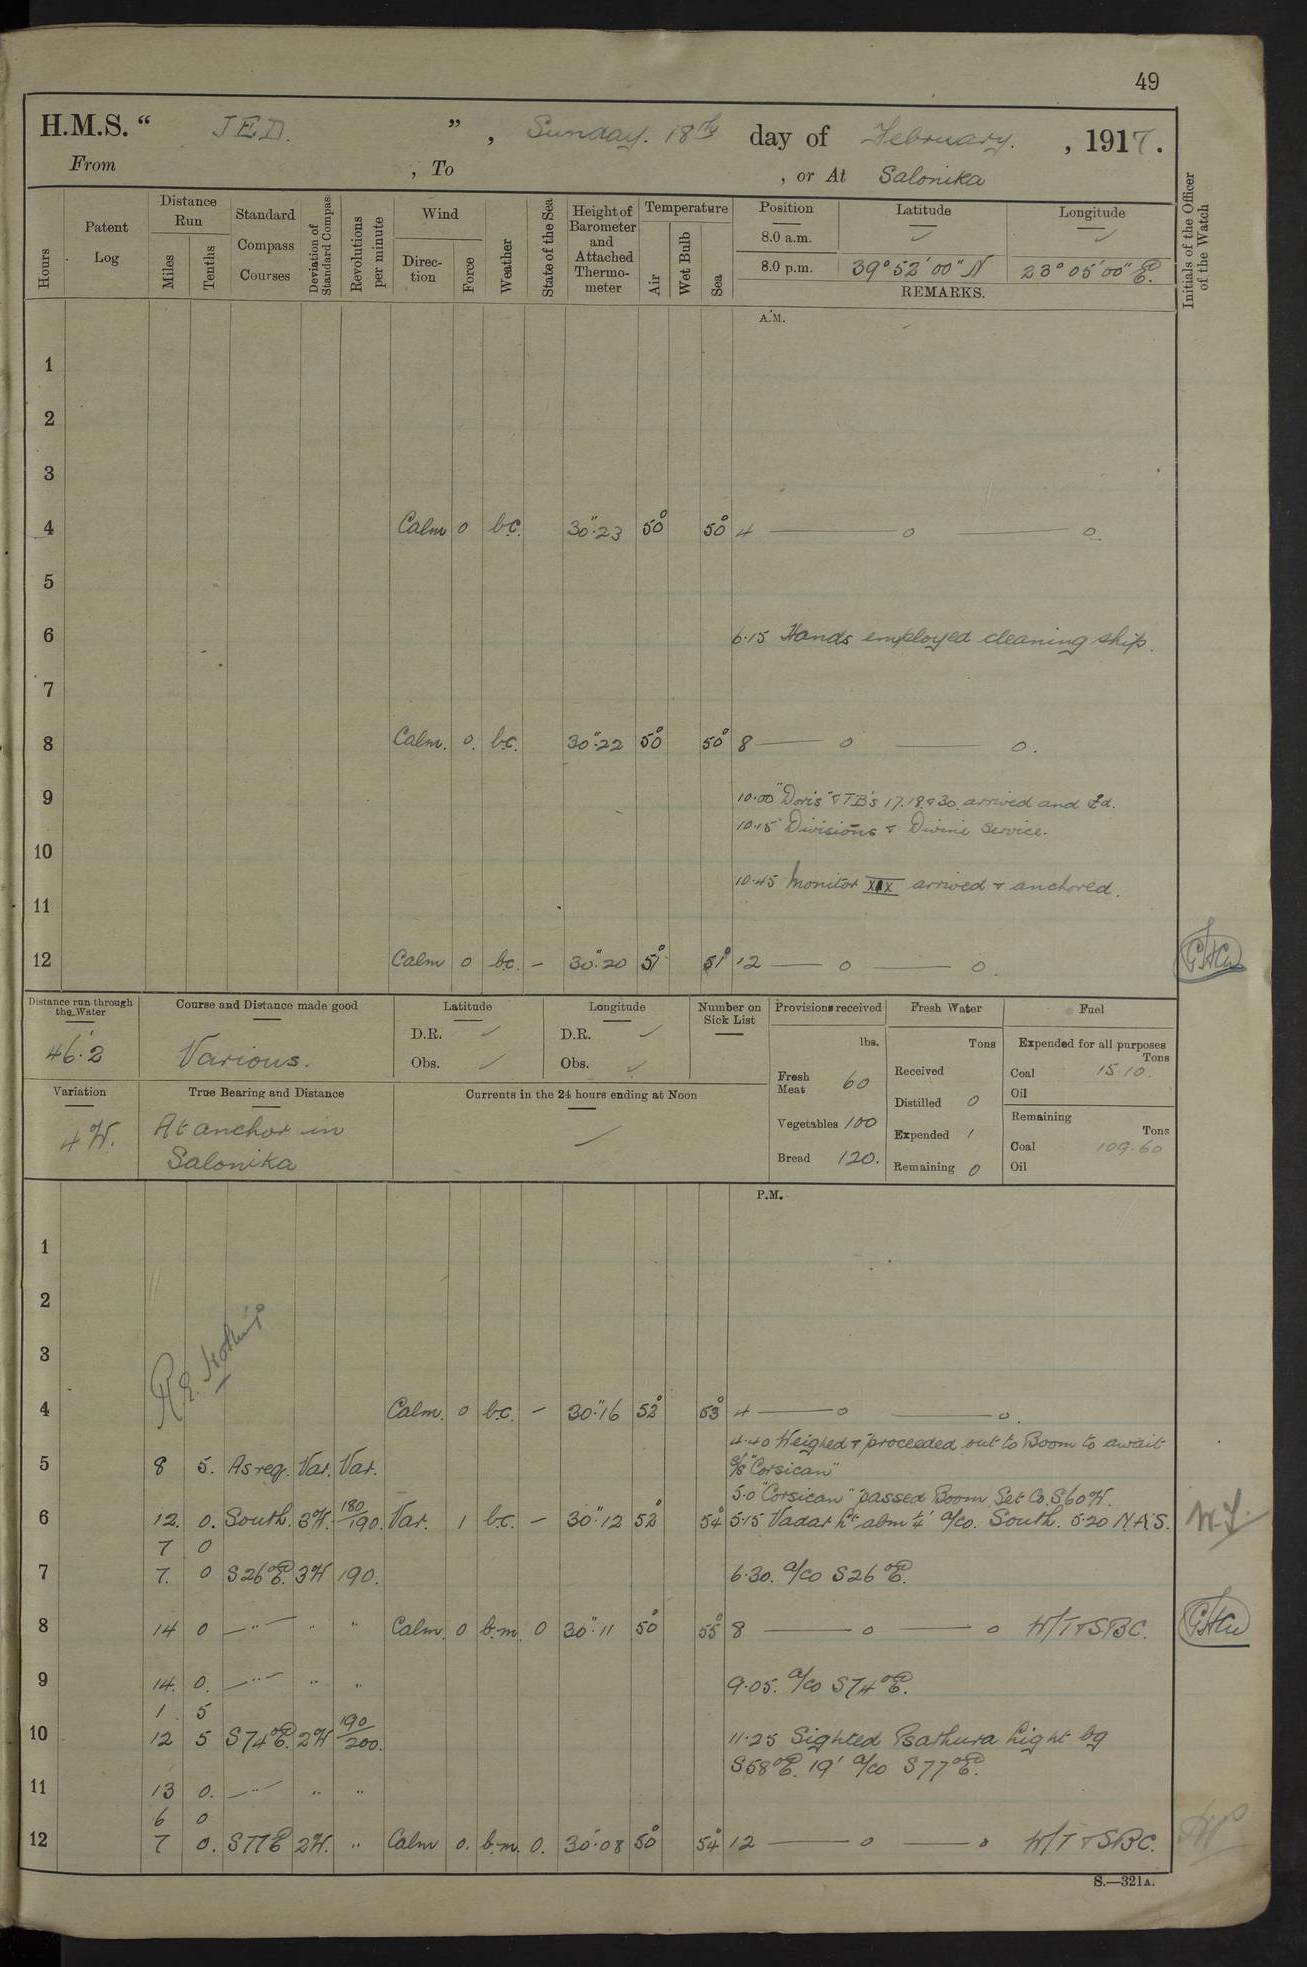 49
H.M.S. “ JED. ” , Sunday. 18th day of February. , 1917.
From , To , or At Salonika
Hours
Patent Log
Distance Run
Miles
Tenths
Standard Compass Courses
Deviation of Standard Compass
Revolutions per minute
Wind
Direction
Force
Weather
State of the Sea
Height of Barometer and Attached Thermometer
Temperature
Air
Wet Bulb
Sea
Position
Latitude
Longitude
8.0 a.m. ✓ ✓
8.0 p.m. 39° 52' 00" N 23° 05' 00" E.
REMARKS.
Initials of the Officer of the Watch
A.M.
1
2
3
4 Calm 0 b.c. 30".23 50° 50° 4 — 0 — 0.
5
6 6.15 Hands employed cleaning ship.
7
8 Calm. 0. b.c. 30".22 50° 50° 8 — 0 — 0.
9 10.00 "Doris" & TB's 17. 18. & 30. arrived and
10.15 Divisions & Divine Service.
10
10.45 Monitor XIX arrived & anchored.
11
12 Calm 0 b.c. – 30".20 51° 51° 12 — 0 — 0.
Distance run through the Water
46'.2
Course and Distance made good
Various.
Latitude
D.R. ✓
Obs. ✓
Longitude
D.R. ✓
Obs. ✓
Number on Sick List
Provisions received
lbs.
Fresh Meat 60
Vegetables 100
Bread 120.
Fresh Water
Tons
Received
Distilled 0
Expended 1
Remaining 0
Fuel
Expended for all purposes
Tons
Coal 15.10.
Oil
Remaining
Tons
Coal 109.60
Oil
Variation
4 W.
True Bearing and Distance
At anchor in
Salonika
Currents in the 24 hours ending at Noon
✓
P.M.
1
2
3
4 Calm. 0 b.c. – 30".16 52° 53° 4 — 0 — 0.
4.40 Weighed & proceeded out to Boom to await
5 8 5. As req. Var. Var. s/s "Corsican"
5.0 "Corsican" passed Boom Set Co. S60W.
6 12. 0. South. 3W. 180/190. Var. 1 b.c. – 30".12 52° 54° 5.15 Vadar Lt abm 1/4' a/co. South. 5.20 N.A.S.
7 0
7 7. 0 S26°E. 3W 190. 6.30. a/co S26°E.
8 14 0 —"— " " Calm. 0 b.m. 0 30".11 50° 55° 8 — 0 — 0 W/T & SBC.
9 14. 0. —"— " " 9.05. a/co S74°E.
1 5
10 12 5 S74°E. 2W 190/200. 11.25 Sighted Psathura Light bg
S58°E. 19' a/co S77°E.
11 13 0. —"— " "
6 0
12 7 0. S77E 2W. " Calm 0. b.m. 0. 30".08 50° 54° 12 — 0 — 0 W/T & SBC.
S.—321A.